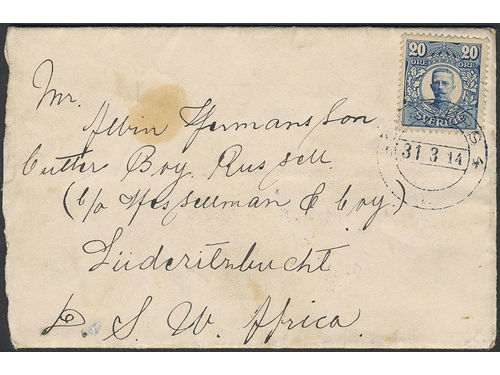 20 20
ÖRE ÖRE
SVERIGE
31 3 14
Mr.
Albin Hermansson
Cutter Boy Russell
(c/o Hesselman & Coy.)
Lüderitzbucht
S. W. Africa.